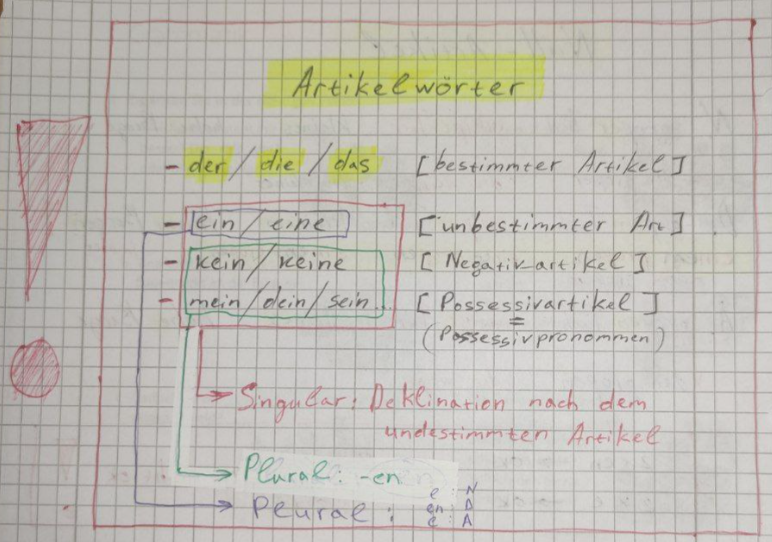 Artikelwörter
- der / die / das [bestimmter Artikel]
- ein / eine [unbestimmter Art]
- kein / keine [Negativartikel]
- mein / dein / sein [Possessivartikel]
=
(Possessivpronommen)
Singular: Deklination nach dem
undestimmten Artikel
Plural: -en
Plural: e: N
en: D
e: A